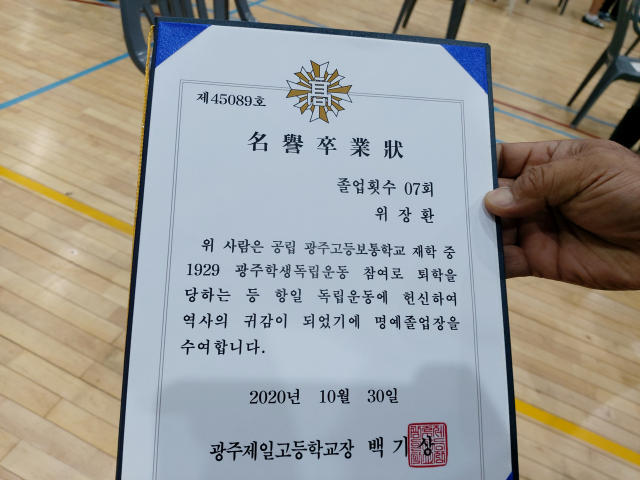 高
제45089호
名譽卒業狀
졸업횟수 07회
위장환
위 사람은 공립 광주고등보통학교 재학 중
1929 광주학생독립운동 참여로 퇴학을
당하는 등 항일 독립운동에 헌신하여
역사의 귀감이 되었기에 명예졸업장을
수여합니다.
2020년 10월 30일
광주제일고등학교장 백기상